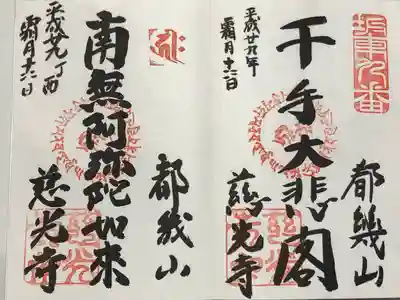 坂東九番
都幾山
千手大悲閣
慈光寺
平成廿九年
霜月
都幾山
南無阿弥陀如來
慈光寺
平成廿九丁酉
霜月